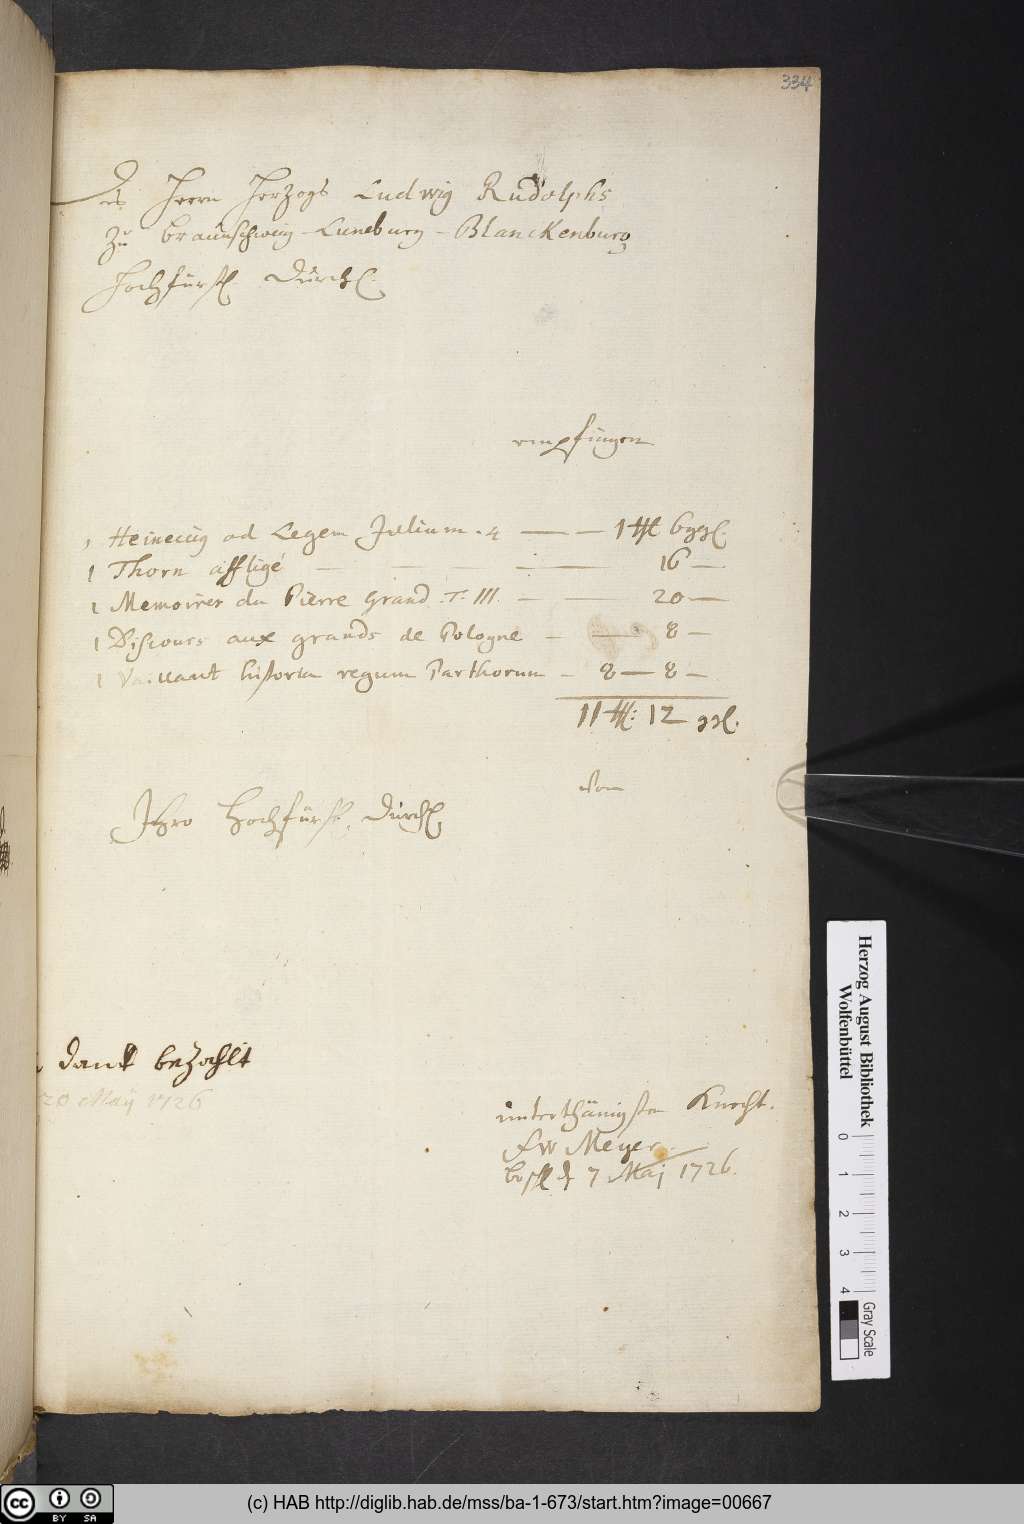 334
Des Herrn Herzogs Ludwig Rudolphs
zu Braunschweig-Luneburg-Blanckenburg
Hochfürstl Durchl.
empfingen
1 Heineccig ad Legem Juliam. 4 — — 1 thl 6 ggl.
1 Thorn affligé — — — — 16 —
1 Memoires du Pierre Grand. T. III. — — 20 —
1 Discours aux grands de Pologne — — 8 —
1 Vaillant historia regum Parthorum — 8 — 8 —
11 thl: 12 ggl.
von
Ihro Hochfürstl. Durchl.
danck bezahlt
20 Maÿ 1726
unterthänigsten Knecht.
FW Meyer.
d 7 Maj 1726.
Herzog August Bibliothek
Wolfenbüttel
0 1 2 3 4
Gray Scale
cc BY SA
(c) HAB http://diglib.hab.de/mss/ba-1-673/start.htm?image=00667